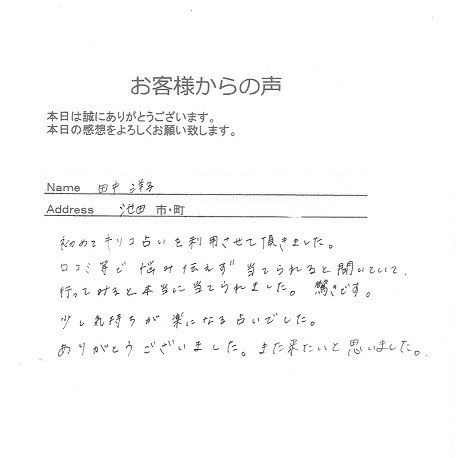 お客様からの声
本日は誠にありがとうございます。
本日の感想をよろしくお願い致します。
Name 田中 洋子
Address 池田 市・町
初めてキリコ占いを利用させて頂きました。
口コミ等で 悩み伝えず 当てられると聞いていて、
行ってみると本当に当てられました。 驚きです。
少し気持ちが 楽になる占いでした。
ありがとうございました。また来たいと思いました。